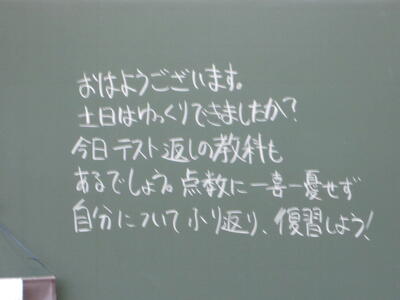 おはようございます。
土日はゆっくりできましたか？
今日テスト返しの教科も
あるでしょう。点数に一喜一憂せず
自分について小り返り、復習しよう！